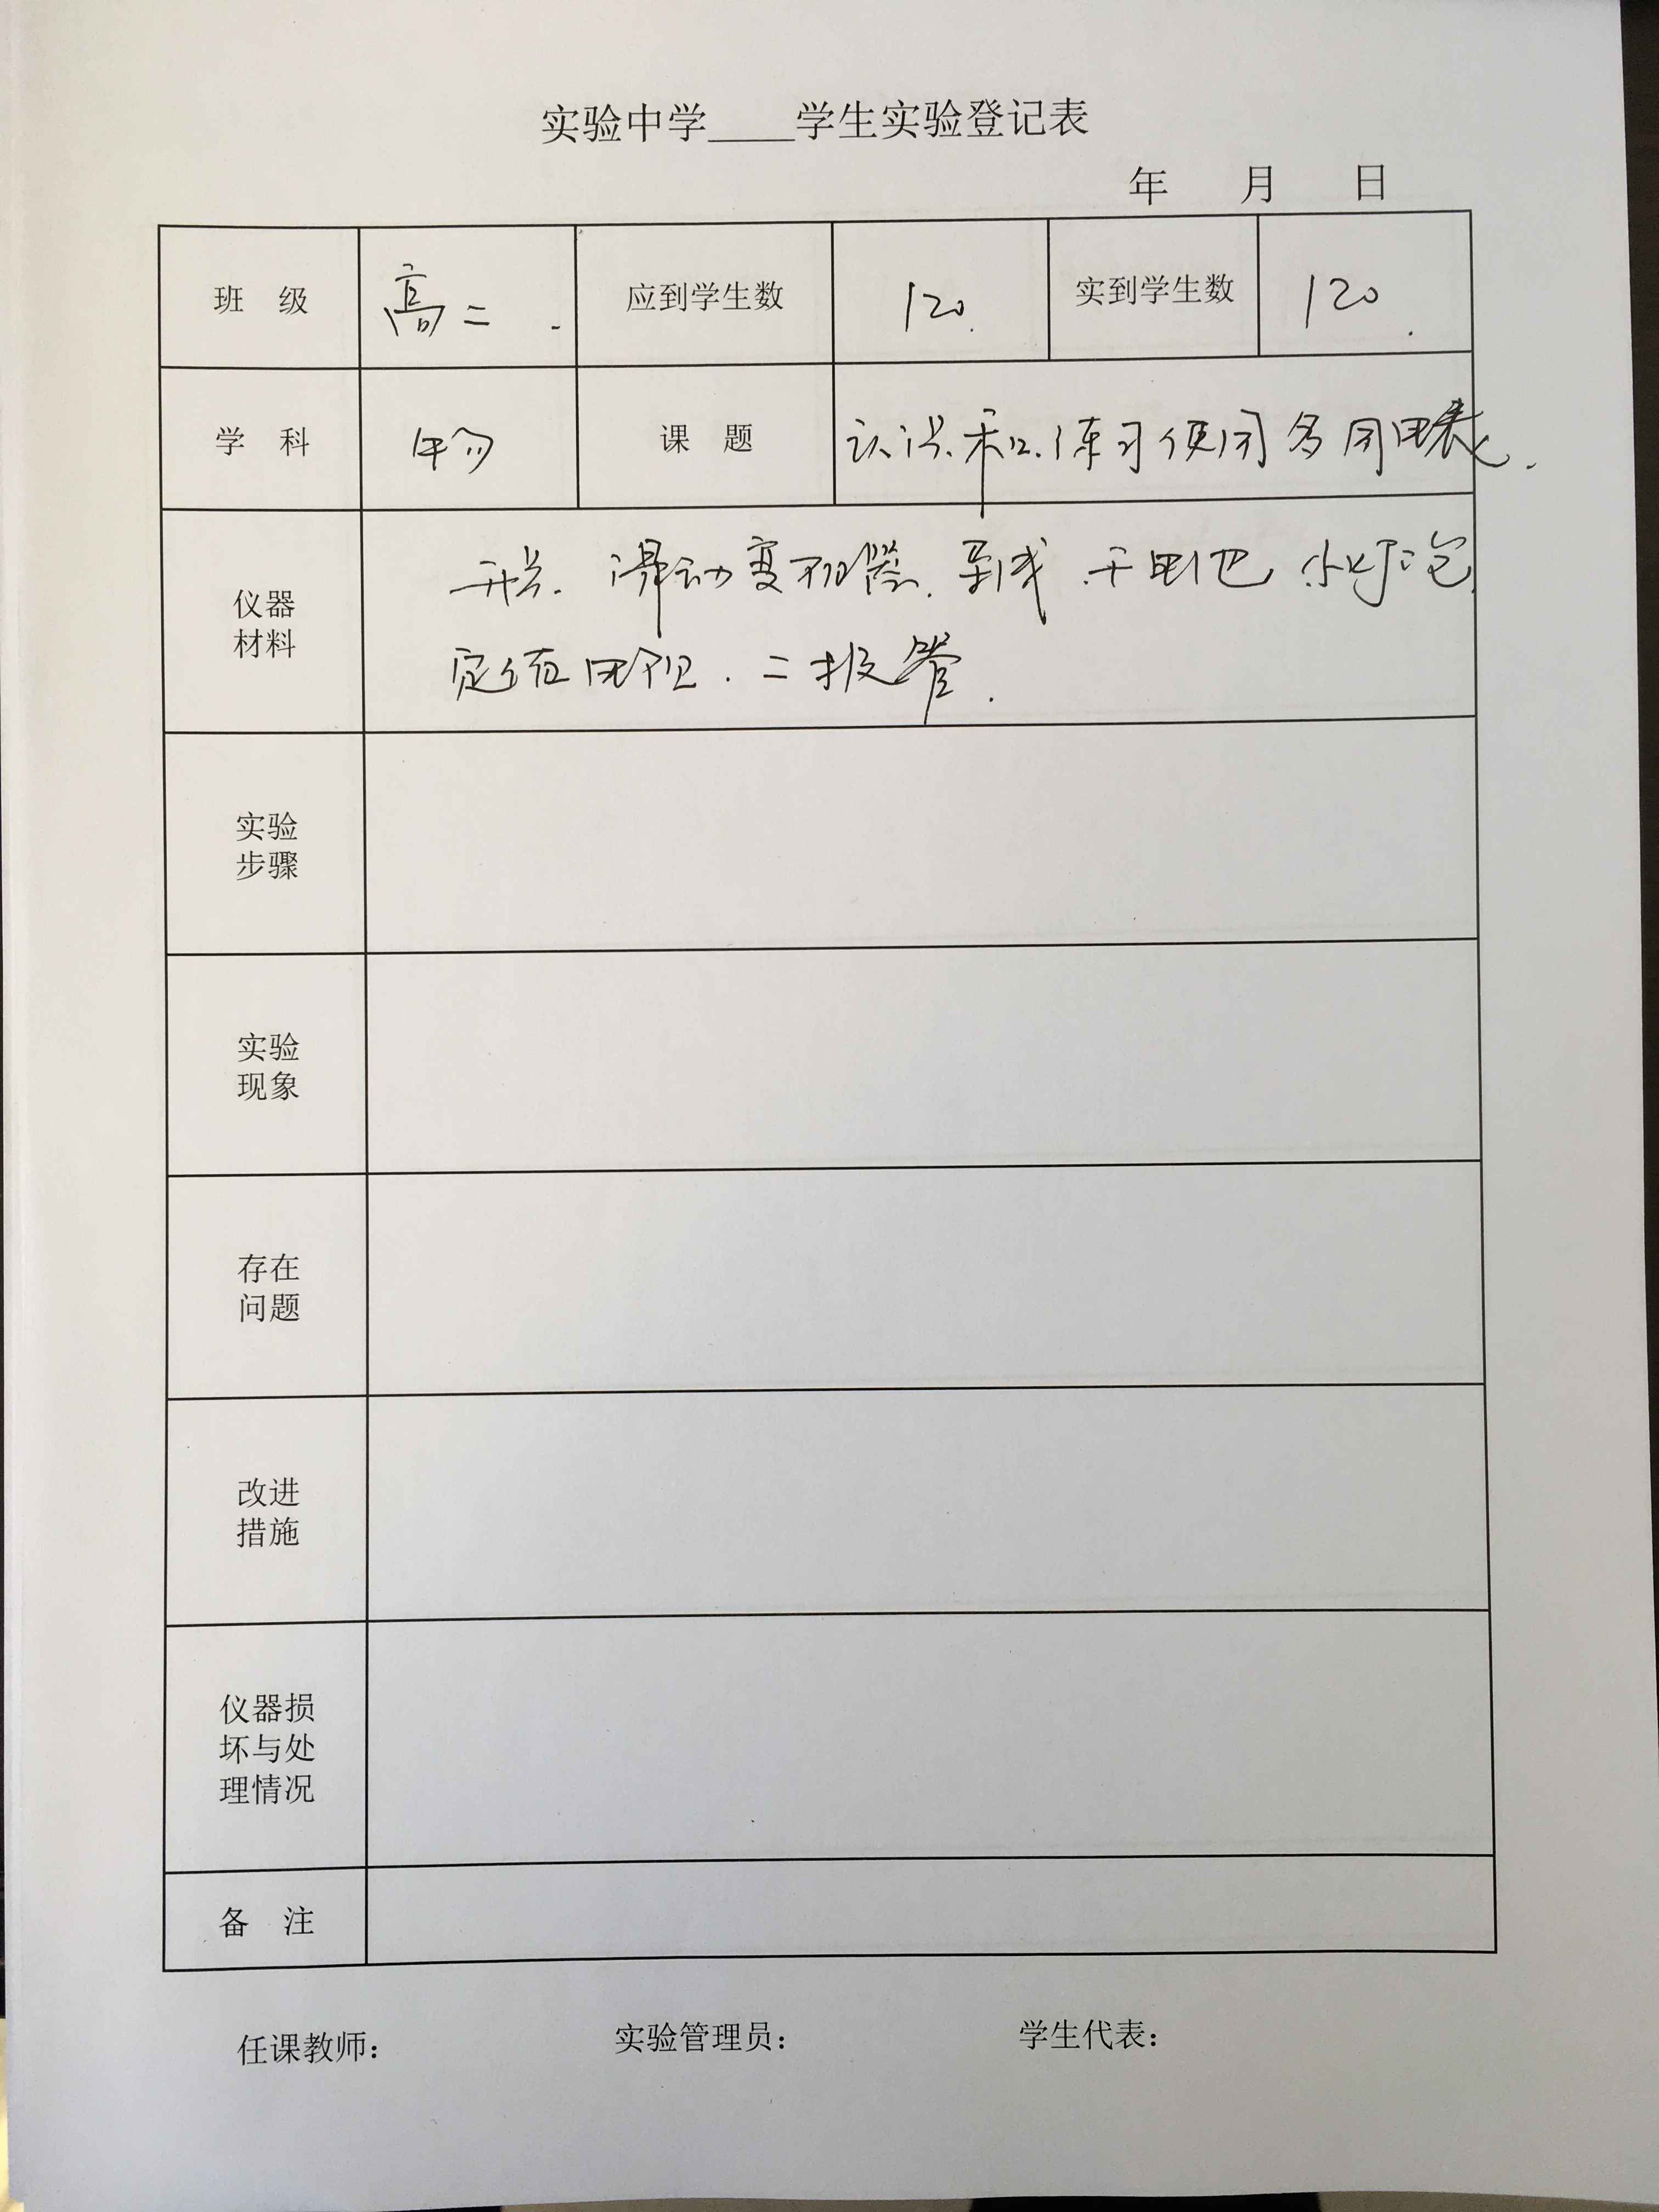 实验中学____学生实验登记表
年 月 日
班 级 高二. 应到学生数 120. 实到学生数 120.
学 科 物 课 题 认识和练习使用多用电表.
仪器 材料 开关. 滑动变阻器. 导线. 干电池 小灯泡
定值电阻. 二极管.
实验
步骤
实验
现象
存在
问题
改进
措施
仪器损
坏与处
理情况
备 注
任课教师: 实验管理员: 学生代表: